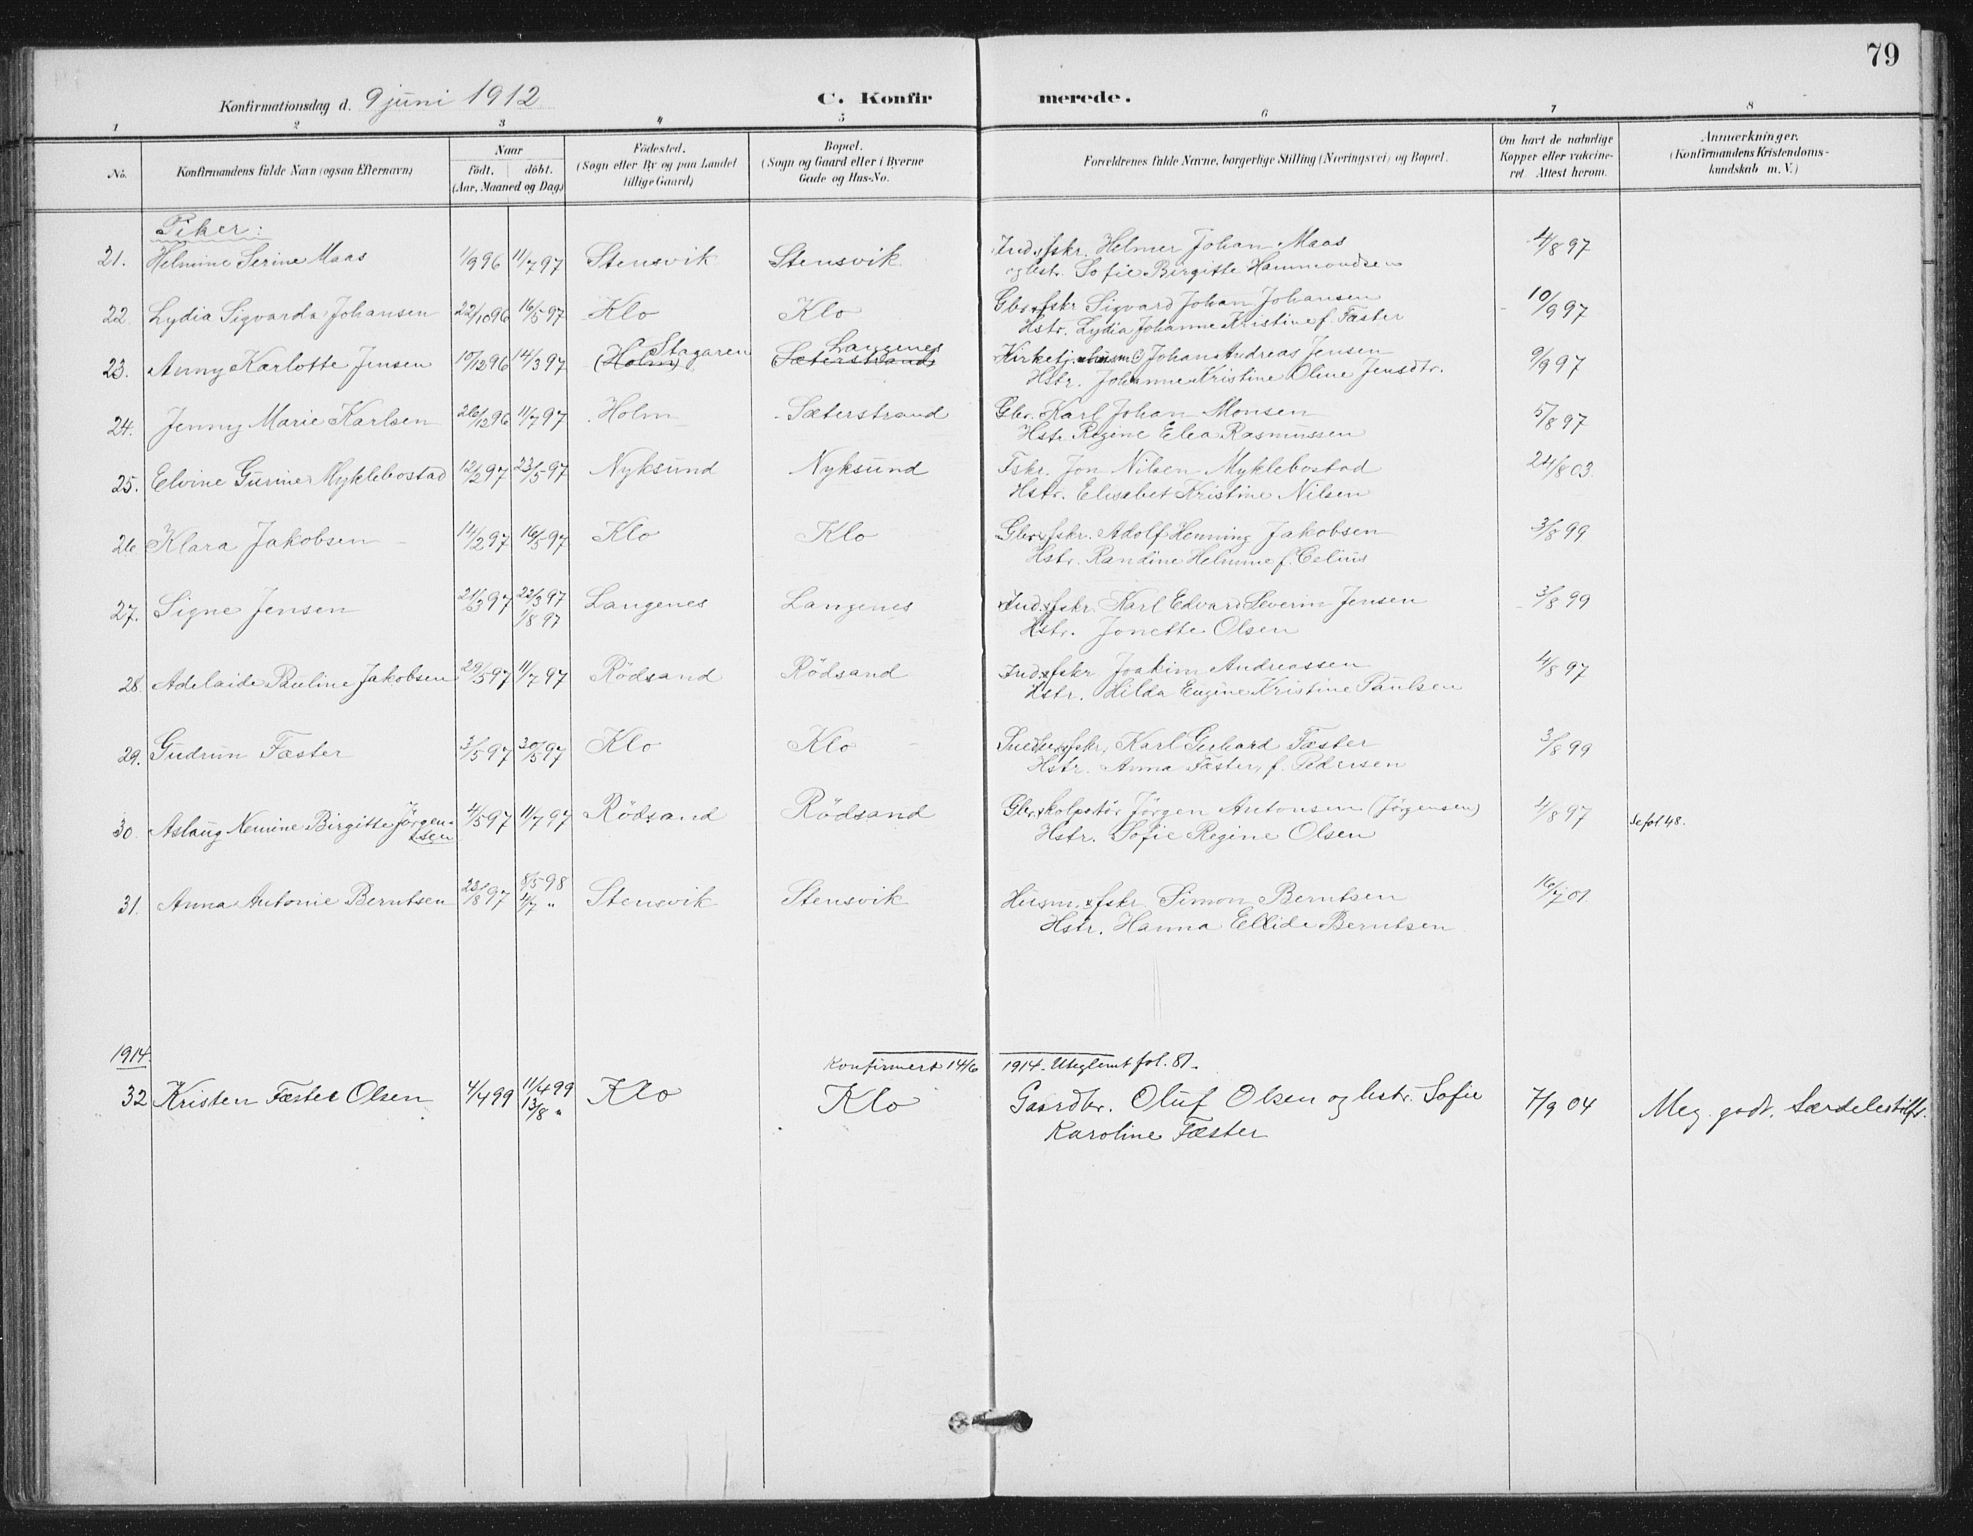 79
Konfirmationsdag d. 9 juni 1912 C. Konfirmerede.
1 2 3 4 5 6 7 8
No. Konfirmandens fulde Navn (ogsaa Efternavn)
Naar
födt, döbt.
(Aar, Maaned og Dag)
Födested.
(Sogn eller By og paa Landet
tillige Gaard)
Bopæl.
(Sogn og Gaard eller i Byerne
Gade og Hus-No.
Forældrenes fulde Navne, borgerlige Stilling (Næringsvei) og Bopæl.
Om havt de naturlige
Kopper eller vakcine-
ret. Attest herom.
Anmærkninger.
(Konfirmandens Kristendoms-
kundskab m. V.)
Piker:
21. Helmine Serine Maas 1/9 96 11/7 97 Stensvik Stensvik Ind. fskr. Helmer Johan Maas 4/8 97
og hst. Sofie Birgitte Hammondsen
22. Lydia Sigvarda Johansen 22/10 96 16/5 97 Klo Klo Gbr. fskr Sigvard Johan Johansen 10/9 97
Hstr. Lydia Johanne Kristine f. Fæster
23. Anny Karlotte Jensen 10/12 96 14/3 97 (Holm) Stagaren Sæterstrand Langenes Kirketj. Johan Andreas Jensen 9/9 97
Hstr. Johanne Kristine Oline Jensdtr.
24. Jenny Marie Karlsen 26/12 96 11/7 97 Holm Sæterstrand Gbr. Karl Johan Monsen 5/8 97
Hstr. Regine Elea Rasmussen
25. Elvine Gurine Myklebostad 12/2 97 23/5 97 Nyksund Nyksund Fskr. Jon Nilsen Myklebostad 24/8 03
Hstr. Elisabet Kristine Nilsen
26. Klara Jakobsen 14/2 97 16/5 97 Klo Klo Gbr. fskr. Adolf Henning Jakobsen 3/8 99
Hstr. Randine Helmine f. Celius
27. Signe Jensen 21/3 97 22/3 97 Langenes Langenes Ind. fskr. Karl Edvard Severin Jensen 3/8 99
1/8 97 Hstr. Jonette Olsen
28. Adelaide Pauline Jakobsen 29/5 97 11/7 97 Rödsand Rödsand Ind. fskr Joakim Andreassen 4/8 97
Hstr. Hilda Eugine Kristine Paulsen
29. Gudrun Fæster 3/5 97 30/5 97 Klo Klo fskr. Karl Gerhard Fæster 3/8 99
Hstr. Anna Fæster, f. Pedersen
30. Aslaug Nemine Birgitte Jörgen- 4/5 97 11/7 97 Rödsand Rödsand Gbr. kolpstör Jörgen Antonsen (Jörgensen) 4/8 97 Se fol. 48.
sen Hstr. Sofie Regine Olsen
31. Anna Antonie Berntsen 23/8 97 8/5 98 Stensvik Stensvik Husm. fskr. Simon Berntsen 16/7 01
4/7 " Hstr. Hanna Ellide Berntsen
1914. Konfirmert 14/6 1914. Uteglemt fol. 81.
32 Kristen Fæster Olsen 4/4 99 11/4 99 Klo Klo Gaardbr. Oluf Olsen og hstr. Sofie 7/9 04 Meg. godt. Særdelestilfr.
13/8 " Karoline Fæster